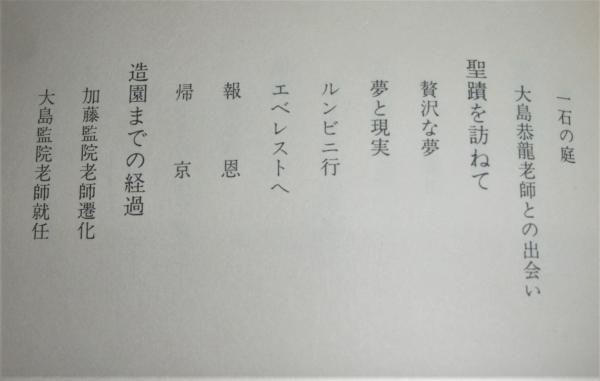 一石の庭
大島恭龍老師との出会い
聖蹟を訪ねて
贅沢な夢
夢と現実
ルンビニ行
エベレストへ
報恩
帰京
造園までの経過
加藤監院老師遷化
大島監院老師就任